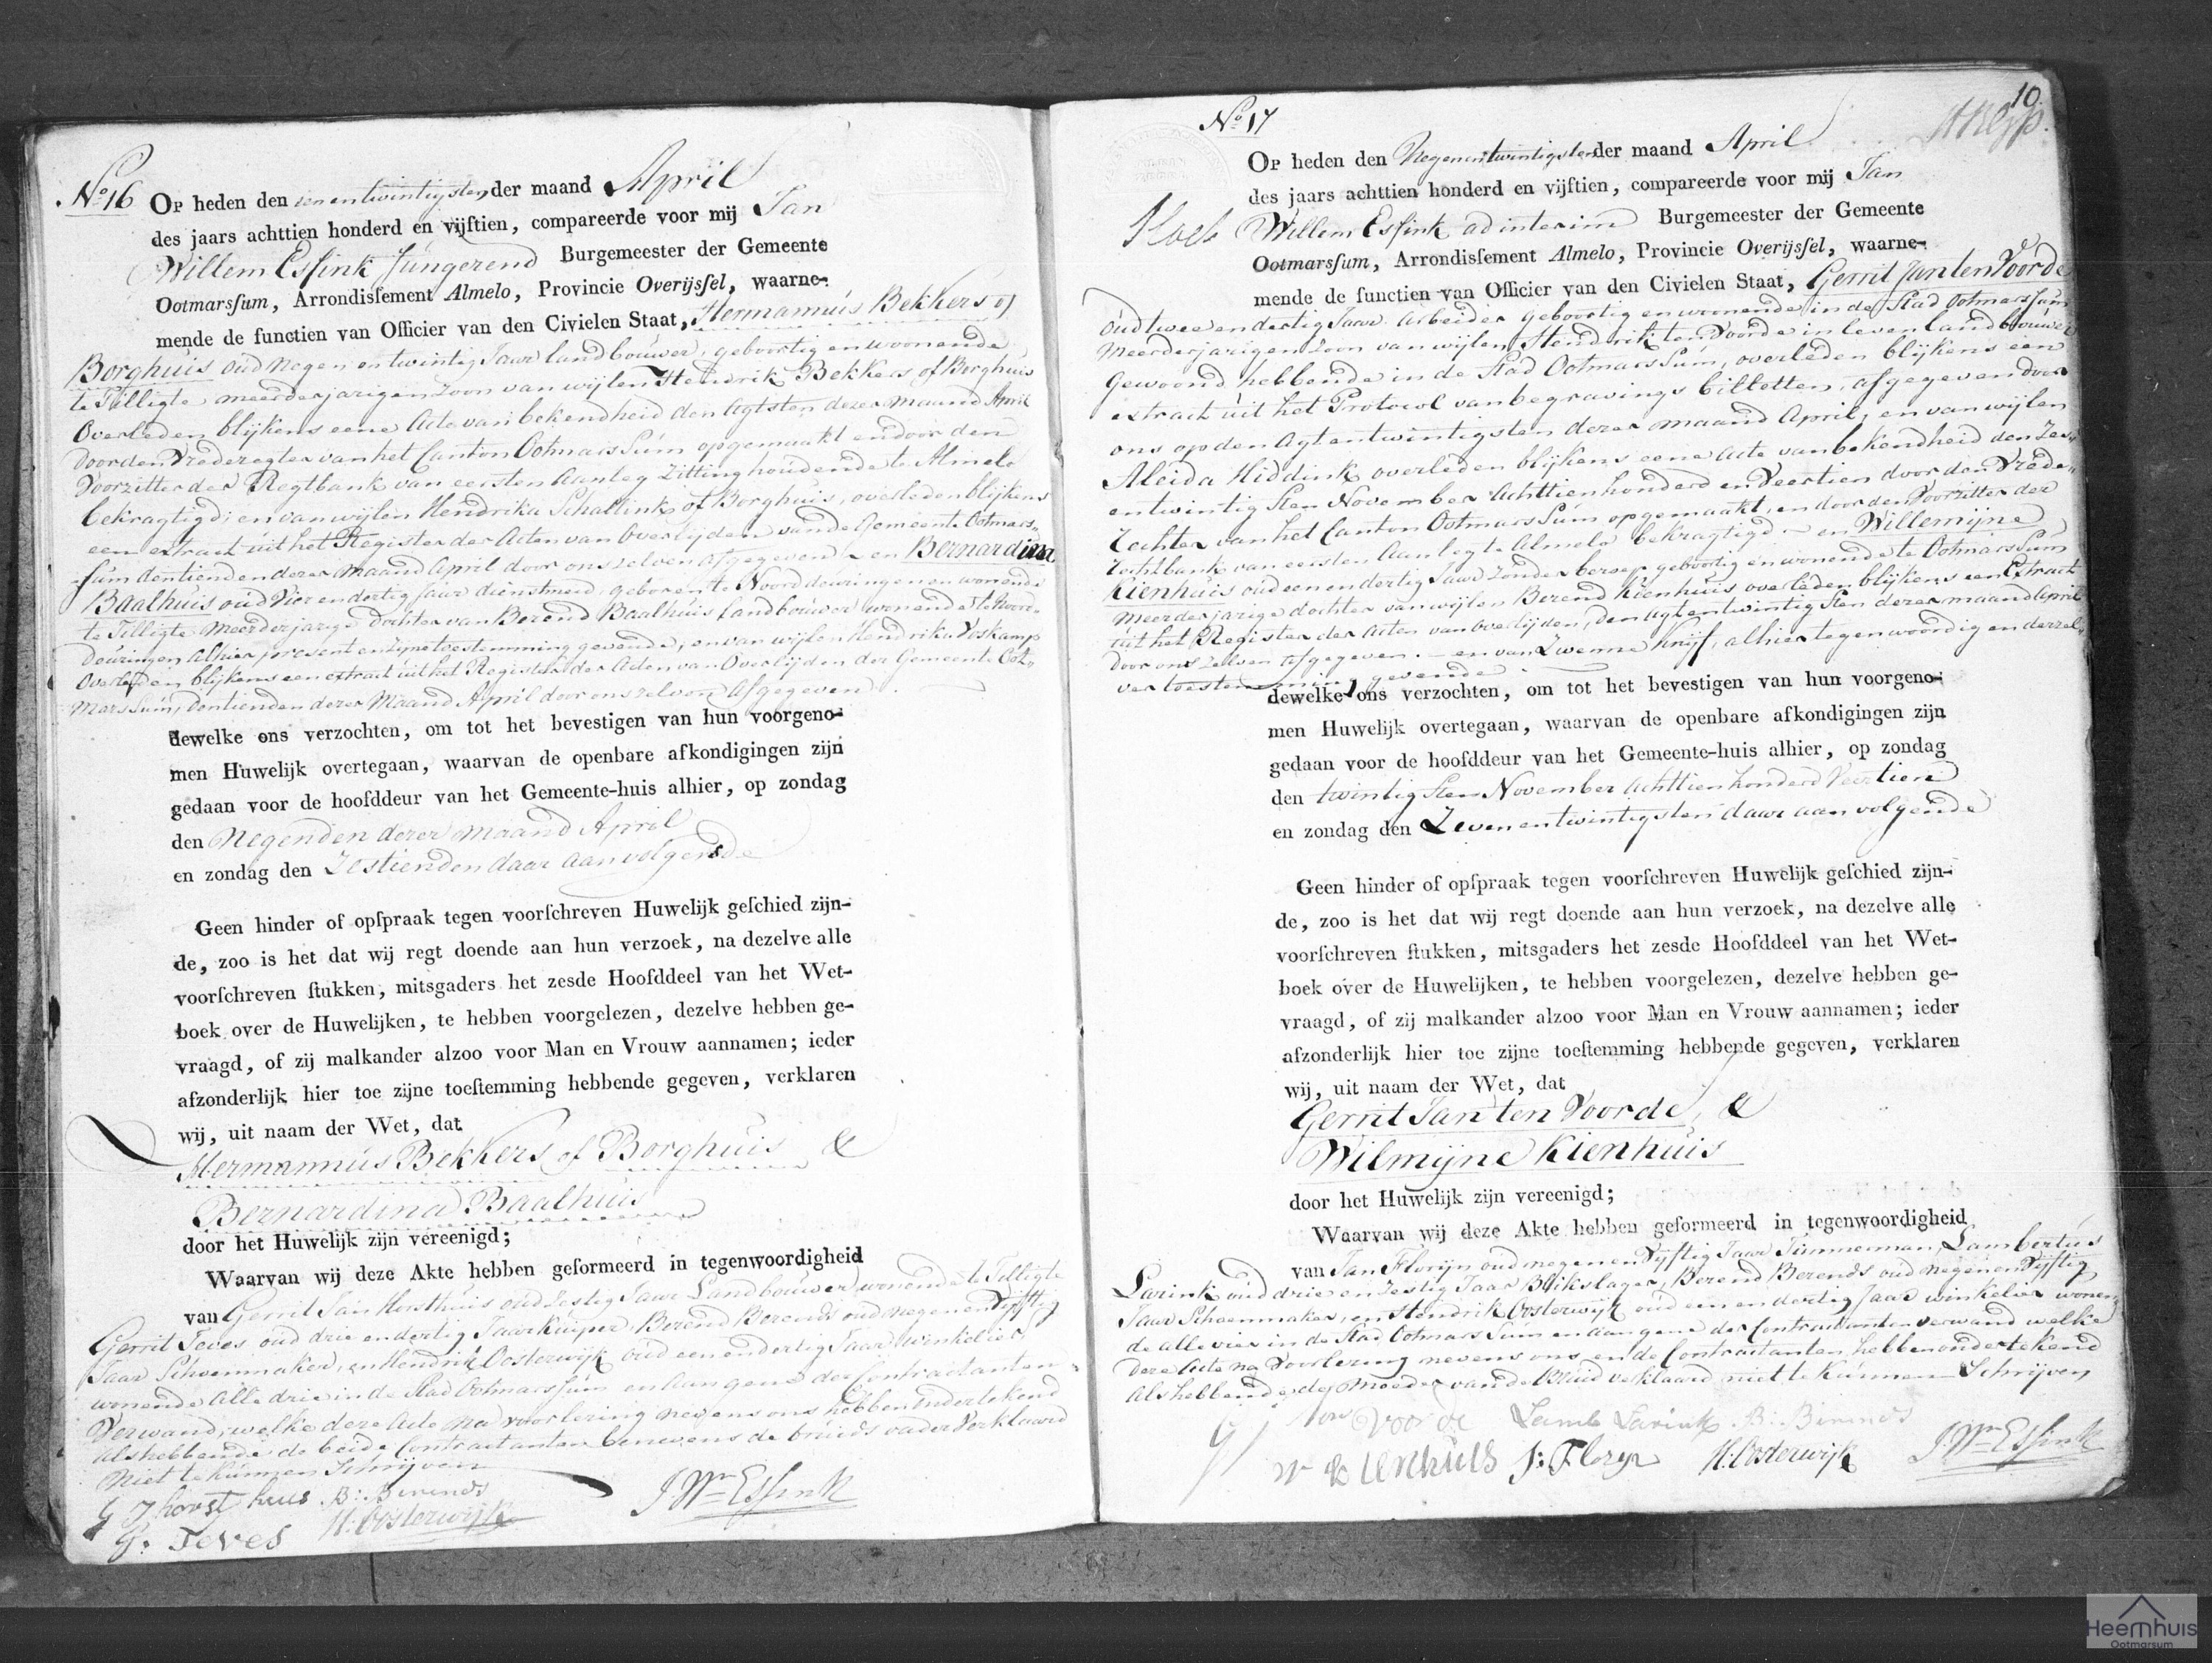 No 16 Op heden den een en twintigsten der maand April
des jaars achttien honderd en vijftien, compareerde voor mij Jan
Willem Essink fungerend Burgemeester der Gemeente
Ootmarsſum, Arrondisſement Almelo, Provincie Overijsſel, waarne-
mende de functien van Officier van den Civielen Staat, Hermannus Bekkers of
Borghuis oud Negen en twintig Jaar landbouwer, geboortig en woonende
te Tilligte meerderjarigen Zoon van wijlen Hendrik Bekkers of Borghuis
Overleden blijkens eene Acte van bekendheid den Agtsten dezer maand April
door den Vrederegter van het Canton Ootmarssum opgemaakt en door den
Voorzitter der Regtbank van eersten Aanleg Zitting houdende te Almelo
bekragtigd; en van wijlen Hendrika Schallink of Borghuis, overleden blijkens
een extract uit het Register der Acten van Overlijden van de Gemeente Ootmars-
sum den tienden dezer Maand April door ons zelven afgegeven en Bernardina
Baalhuis oud Vier en dertig Jaar dienstmeid, geboren te Noorddeuringen en wonende
te Tilligte Meerderjarige Dochter van Berend Baalhuis Landbouwer wonende te Noord-
deuringen Alhier present en Zijne toestemming gevende, en van wijlen Hendrika Voskamp
Overleden blijkens een extract uit het Register der Acten van Overlijden der Gemeente Oot-
marssum, den tienden dezer Maand April door ons zelven Afgegeven
dewelke ons verzochten, om tot het bevestigen van hun voorgeno-
men Huwelijk overtegaan, waarvan de openbare afkondigingen zijn
gedaan voor de hoofddeur van het Gemeente-huis alhier, op zondag
den Negenden dezer maand April
en zondag den Zestienden daar aanvolgende
Geen hinder of opſpraak tegen voorſchreven Huwelijk geſchied zijn-
de, zoo is het dat wij regt doende aan hun verzoek, na dezelve alle
voorſchreven ſtukken, mitsgaders het zesde Hoofddeel van het Wet-
boek over de Huwelijken, te hebben voorgelezen, dezelve hebben ge-
vraagd, of zij malkander alzoo voor Man en Vrouw aannamen; ieder
afzonderlijk hier toe zijne toeſtemming hebbende gegeven, verklaren
wij, uit naam der Wet, dat
Hermannus Bekkers of Borghuis &
Bernardina Baalhuis
door het Huwelijk zijn vereenigd;
Waarvan wij deze Akte hebben geformeerd in tegenwoordigheid
van Gerrit Jan Horsthuis oud Zestig Jaar Landbouwer wonende te Tilligte
Gerrit Teves oud drie en dertig Jaar Kuiper, Berend Berends oud negen en Vijftig
Jaar Schoenmaker, en Hendrik Oosterwijk oud een en dertig Jaar Winkelier
wonende Alle drie in de Stad Ootmarssum en Aangene der Contractanten
Verwand, welke deze Acte Na voorlezing nevens ons hebben ondertekend
Als hebbende de beide Contractanten benevens de bruids vader Verklaard
Niet te kunnen Schrijven
G J horst huis B: Berends
G. Teves H: Oosterwijk J Wm Essink
10
No 17
Op heden den Negenentwintigsten der maand April
des jaars achttien honderd en vijftien, compareerde voor mij Jan
Willem Essink ad interim Burgemeester der Gemeente
Ootmarsſum, Arrondisſement Almelo, Provincie Overijsſel, waarne-
mende de functien van Officier van den Civielen Staat, Gerrit Jan ten Voorde
oud twee en dertig Jaar Arbeider geboortig en woonende in de Stad Ootmarssum
Meerderjarigen Zoon van wijlen Hendrik ten Voorde in leven landbouwer
Gewoond hebbende in de Stad Ootmarssum, overleden blijkens een
extract uit het Protocol van begravings billetten, afgegeven door
ons op den Agt en twintigsten dezer maand April, en van wijlen
Aleida Hiddink overleden blijkens eene Acte van bekendheid den Zes-
entwintigsten November Achttienhonderd en Veertien door den Vrede-
rechter van het Canton Ootmarssum opgemaakt, en door den Voorzitter der
rechtbank van eersten Aanleg te Almelo bekragtigd - en Willemijne
Kienhuis oud een en dertig Jaar Zonder beroep geboortig en wonende te Ootmarssum
Meerderjarige dochter van wijlen Berend Kienhuis overleden blijkens een Extract
uit het Register der Acten van Overlijden, den agt en twintigsten dezer maand April
door ons zelven afgegeven. - en van Zwenne Knijf, alhier tegenwoordig en derzel-
ver toestemming gevende
dewelke ons verzochten, om tot het bevestigen van hun voorgeno-
men Huwelijk overtegaan, waarvan de openbare afkondigingen zijn
gedaan voor de hoofddeur van het Gemeente-huis alhier, op zondag
den twintigsten November Achttienhonderd Veertien
en zondag den Zevenentwintigsten daar aanvolgende
Geen hinder of opſpraak tegen voorſchreven Huwelijk geſchied zijn-
de, zoo is het dat wij regt doende aan hun verzoek, na dezelve alle
voorſchreven ſtukken, mitsgaders het zesde Hoofddeel van het Wet-
boek over de Huwelijken, te hebben voorgelezen, dezelve hebben ge-
vraagd, of zij malkander alzoo voor Man en Vrouw aannamen; ieder
afzonderlijk hier toe zijne toeſtemming hebbende gegeven, verklaren
wij, uit naam der Wet, dat
Gerrit Jan ten Voorde &
Wilmijne Kienhuis
door het Huwelijk zijn vereenigd;
Waarvan wij deze Akte hebben geformeerd in tegenwoordigheid
van Jan Florijn oud negen en Vijftig Jaar Timmerman, Lambertus
Larink oud drie en Zestig Jaar Blikslager, Berend Berends oud negen en Vijftig
Jaar Schoenmaker, en Hendrik Oosterwijk oud een en dertig Jaar winkelier wonen-
de alle vier in de Stad Ootmarssum en aangene der Contractanten verwand welke
deze Acte na Voorlezing nevens ons en de Contractanten hebben ondertekend
als hebbende de Moeder van de bruid verklaard niet te kunnen Schrijven
ten Voorde Lamb Larink B: Berends
W Kienhuis J: Floryn H: Oosterwijk J. Wm Essink
Heemhuis
Ootmarsum